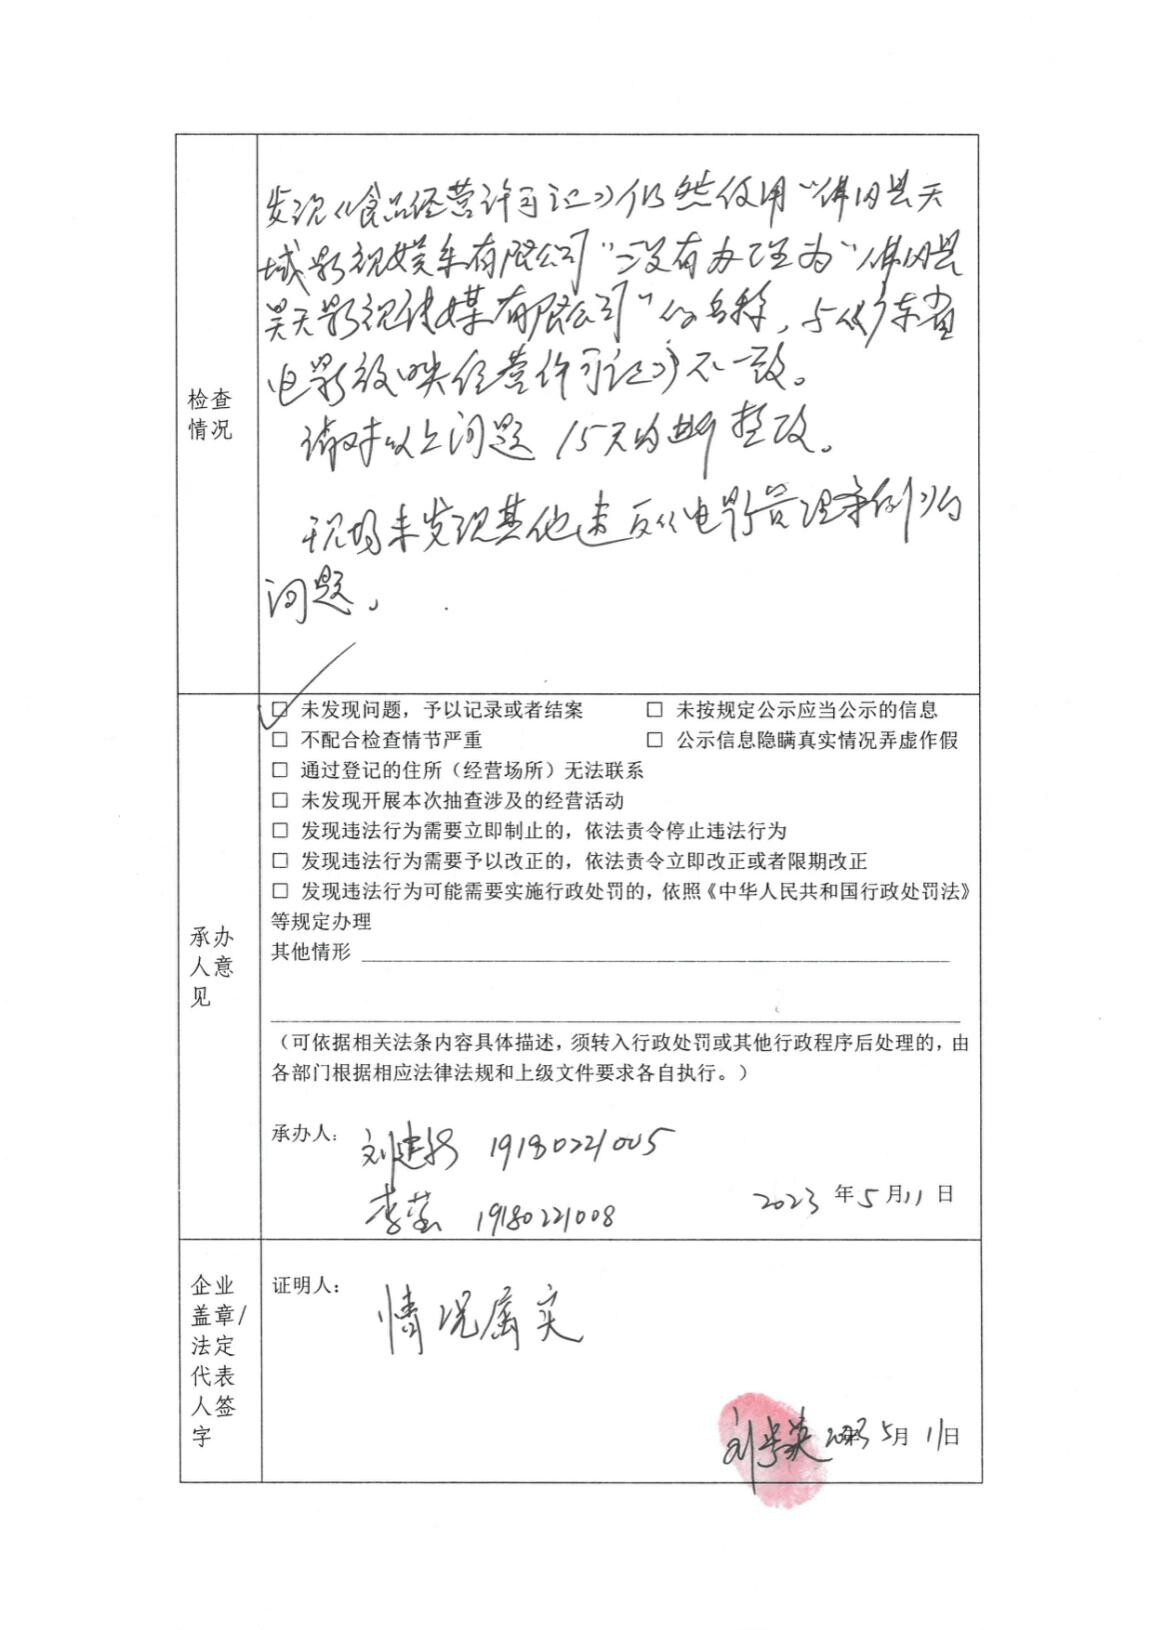 检查
情况
发现《食品经营许可证》仍然使用“佛冈县天
域影视娱乐有限公司”没有办理为“佛冈县
昊天影视传媒有限公司”的名称，与《广东省
电影放映经营许可证》不一致。
请对以上问题15天内进行整改。
现场未发现其他违反《电影管理条例》的
问题。
承办
人意
见
☑ 未发现问题，予以记录或者结案 □ 未按规定公示应当公示的信息
□ 不配合检查情节严重 □ 公示信息隐瞒真实情况弄虚作假
□ 通过登记的住所（经营场所）无法联系
□ 未发现开展本次抽查涉及的经营活动
□ 发现违法行为需要立即制止的，依法责令停止违法行为
□ 发现违法行为需要予以改正的，依法责令立即改正或者限期改正
□ 发现违法行为可能需要实施行政处罚的，依照《中华人民共和国行政处罚法》
等规定办理
其他情形
（可依据相关法条内容具体描述，须转入行政处罚或其他行政程序后处理的，由
各部门根据相应法律法规和上级文件要求各自执行。）
承办人： 刘建 19180221005
李莹 19180221008
2023 年 5 月 11 日
企业
盖章/
法定
代表
人签
字
证明人：
情况属实
刘 英 2023 5月 11日